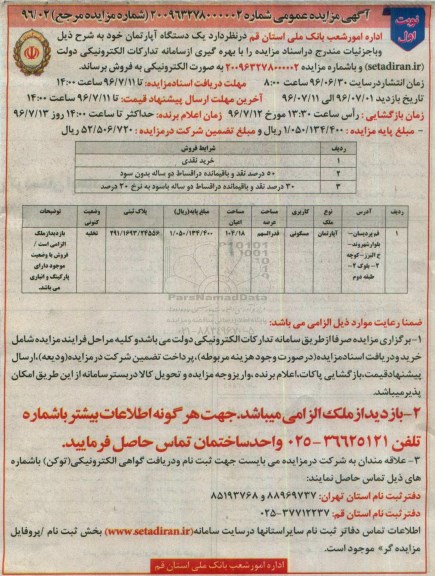 نوبت اول
آگهی مزایده عمومی شماره ۲۰۰۹۶۳۲۷۸۰۰۰۰۰۲ (شماره مزایده مرجع) ۹۶/۰۲
اداره امور شعب بانک ملی استان قم در نظر دارد یک دستگاه آپارتمان خود به شرح ذیل
و با جزئیات مندرج در اسناد مزایده را با بهره گیری از سامانه تدارکات الکترونیکی دولت
(setadiran.ir) و با شماره مزایده ۲۰۰۹۶۳۲۷۸۰۰۰۰۰۲ به صورت الکترونیکی به فروش برساند.
زمان انتشار در سایت ۹۶/۰۶/۳۰ ساعت ۸:۰۰ مهلت دریافت اسناد مزایده: تا ۹۶/۷/۱۱ ساعت ۱۴:۰۰
تاریخ بازدید ۹۶/۰۷/۰۱ الی ۹۶/۰۷/۱۱ آخرین مهلت ارسال پیشنهاد قیمت: تا ۹۶/۷/۱۱ ساعت ۱۴:۰۰
زمان بازگشایی: راس ساعت ۱۳:۳۰ مورخ ۹۶/۷/۱۲ زمان اعلام برنده: حداکثر تا ساعت ۱۴:۰۰ روز ۹۶/۷/۱۳
- مبلغ پایه مزایده: ۱/۰۵۰/۱۳۴/۴۰۰ ریال و مبلغ تضمین شرکت در مزایده: ۵۲/۵۰۶/۷۲۰ ریال
ردیف شرایط فروش
۱ خرید نقدی
۲ ۵۰ درصد نقد و باقیمانده در اقساط دو ساله بدون سود
۳ ۳۰ درصد نقد و باقیمانده در اقساط دو ساله با سود به نرخ ۲۰ درصد
ردیف آدرس نوع ملک کاربری مساحت عرصه مساحت اعیان مبلغ پایه (ریال) پلاک ثبتی وضعیت کنونی توضیحات
۱ قم پردیسان - بلوار شهروند - خ البرز - کوچه ۲ - بلوک ۲ - طبقه دوم آپارتمان مسکونی قدرالسهم ۱۰۴/۱۸ ۱/۰۵۰/۱۳۴/۴۰۰ ۲۹۱/۱۶۹۳/۲۴۵۵۶ تخلیه بازدید از ملک الزامی است / فروش با وضعیت موجود دارای پارکینگ و انباری می باشد.
ParsNamadData
۰۲۱-۸۸۳۴۹۶۷۰-۵
ضمنا رعایت موارد ذیل الزامی می باشد:
۱- برگزاری مزایده صرفا از طریق سامانه تدارکات الکترونیکی دولت می باشد و کلیه مراحل فرایند مزایده شامل
خرید و دریافت اسناد مزایده (در صورت وجود هزینه مربوطه)، پرداخت تضمین شرکت در مزایده (ودیعه)، ارسال
پیشنهاد قیمت، بازگشایی پاکات، اعلام برنده، واریز وجه مزایده و تحویل کالا در بستر سامانه از این طریق امکان
پذیر میباشد.
۲- بازدید از ملک الزامی میباشد. جهت هر گونه اطلاعات بیشتر با شماره
تلفن ۳۶۶۲۵۱۲۱-۰۲۵ واحد ساختمان تماس حاصل فرمایید.
۳- علاقه مندان به شرکت در مزایده می بایست جهت ثبت نام و دریافت گواهی الکترونیکی (توکن) با شماره
های ذیل تماس حاصل نمایند:
دفتر ثبت نام استان تهران: ۸۸۹۶۹۷۳۷ و ۸۵۱۹۳۷۶۸
دفتر ثبت نام استان قم: ۳۷۷۱۲۲۳۷-۰۲۵
اطلاعات تماس دفاتر ثبت نام سایر استانها در سایت سامانه (www.setadiran.ir) بخش ثبت نام / پروفایل
مزایده گر» موجود است.
اداره امور شعب بانک ملی استان قم